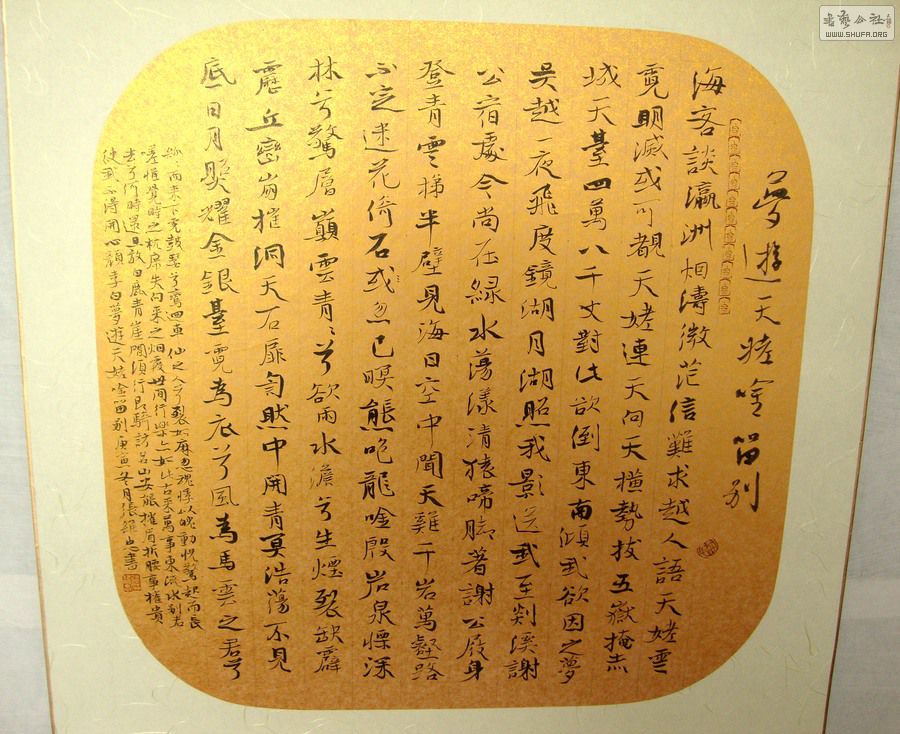 夢遊天姥吟留別
海客談瀛洲烟濤微茫信難求越人語天姥雲
霓明滅或可覩天姥連天向天橫勢拔五嶽掩赤
城天臺四萬八千丈對此欲倒東南傾我欲因之夢
吳越一夜飛度鏡湖月湖照我影送我至剡溪謝
公宿處今尚在緑水蕩漾清猿啼脚著謝公屐身
登青雲梯半壁見海日空中聞天雞千岩萬壑路
不定迷花倚石或忽已暝熊咆龍吟殷岩泉慄深
林兮驚層巔雲青々兮欲雨水澹兮生煙裂缺霹
靂丘巒崩摧洞天石扉訇然中開青冥浩蕩不見
底日月照耀金銀臺霓為衣兮風為馬雲之君兮
紛々而来下虎鼓瑟兮鸞回車仙之人兮如麻忽魂悸以魄動恍驚起而長
嗟惟覺時之枕席失向来之烟霞世間行樂亦如此古来萬事東流水别君
去兮何時還且放白鹿青崖間須行即騎訪名山安能摧眉折腰事權貴
使我不得開心顔李白夢遊天姥吟留别庚寅冬月張維書
書藝公社
WWW.SHUFA.ORG